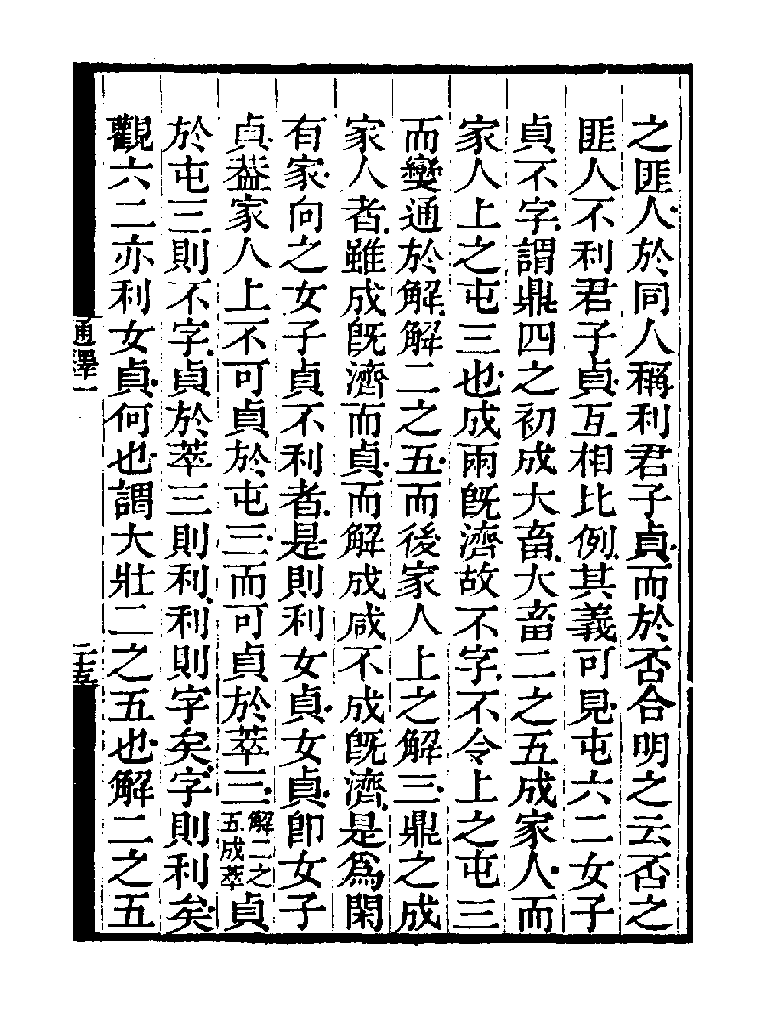 之匪人於同人稱利君子貞而於否合明之云否之
匪人不利君子貞互相比例其義可見屯六二女子
貞不字謂鼎四之初成大畜大畜二之五成家人而
家人上之屯三也成兩既濟故不字不令上之屯三
而變通於解解二之五而後家人上之解三鼎之成
家人者雖成既濟而貞而解成咸不成既濟是爲閑
有家向之女子貞不利者是則利女貞女貞卽女子
貞葢家人上不可貞於屯三而可貞於萃三解二之五成萃貞
於屯三則不字貞於萃三則利利則字矣字則利矣
觀六二亦利女貞何也謂大壯二之五也解二之五
通釋一
二十五